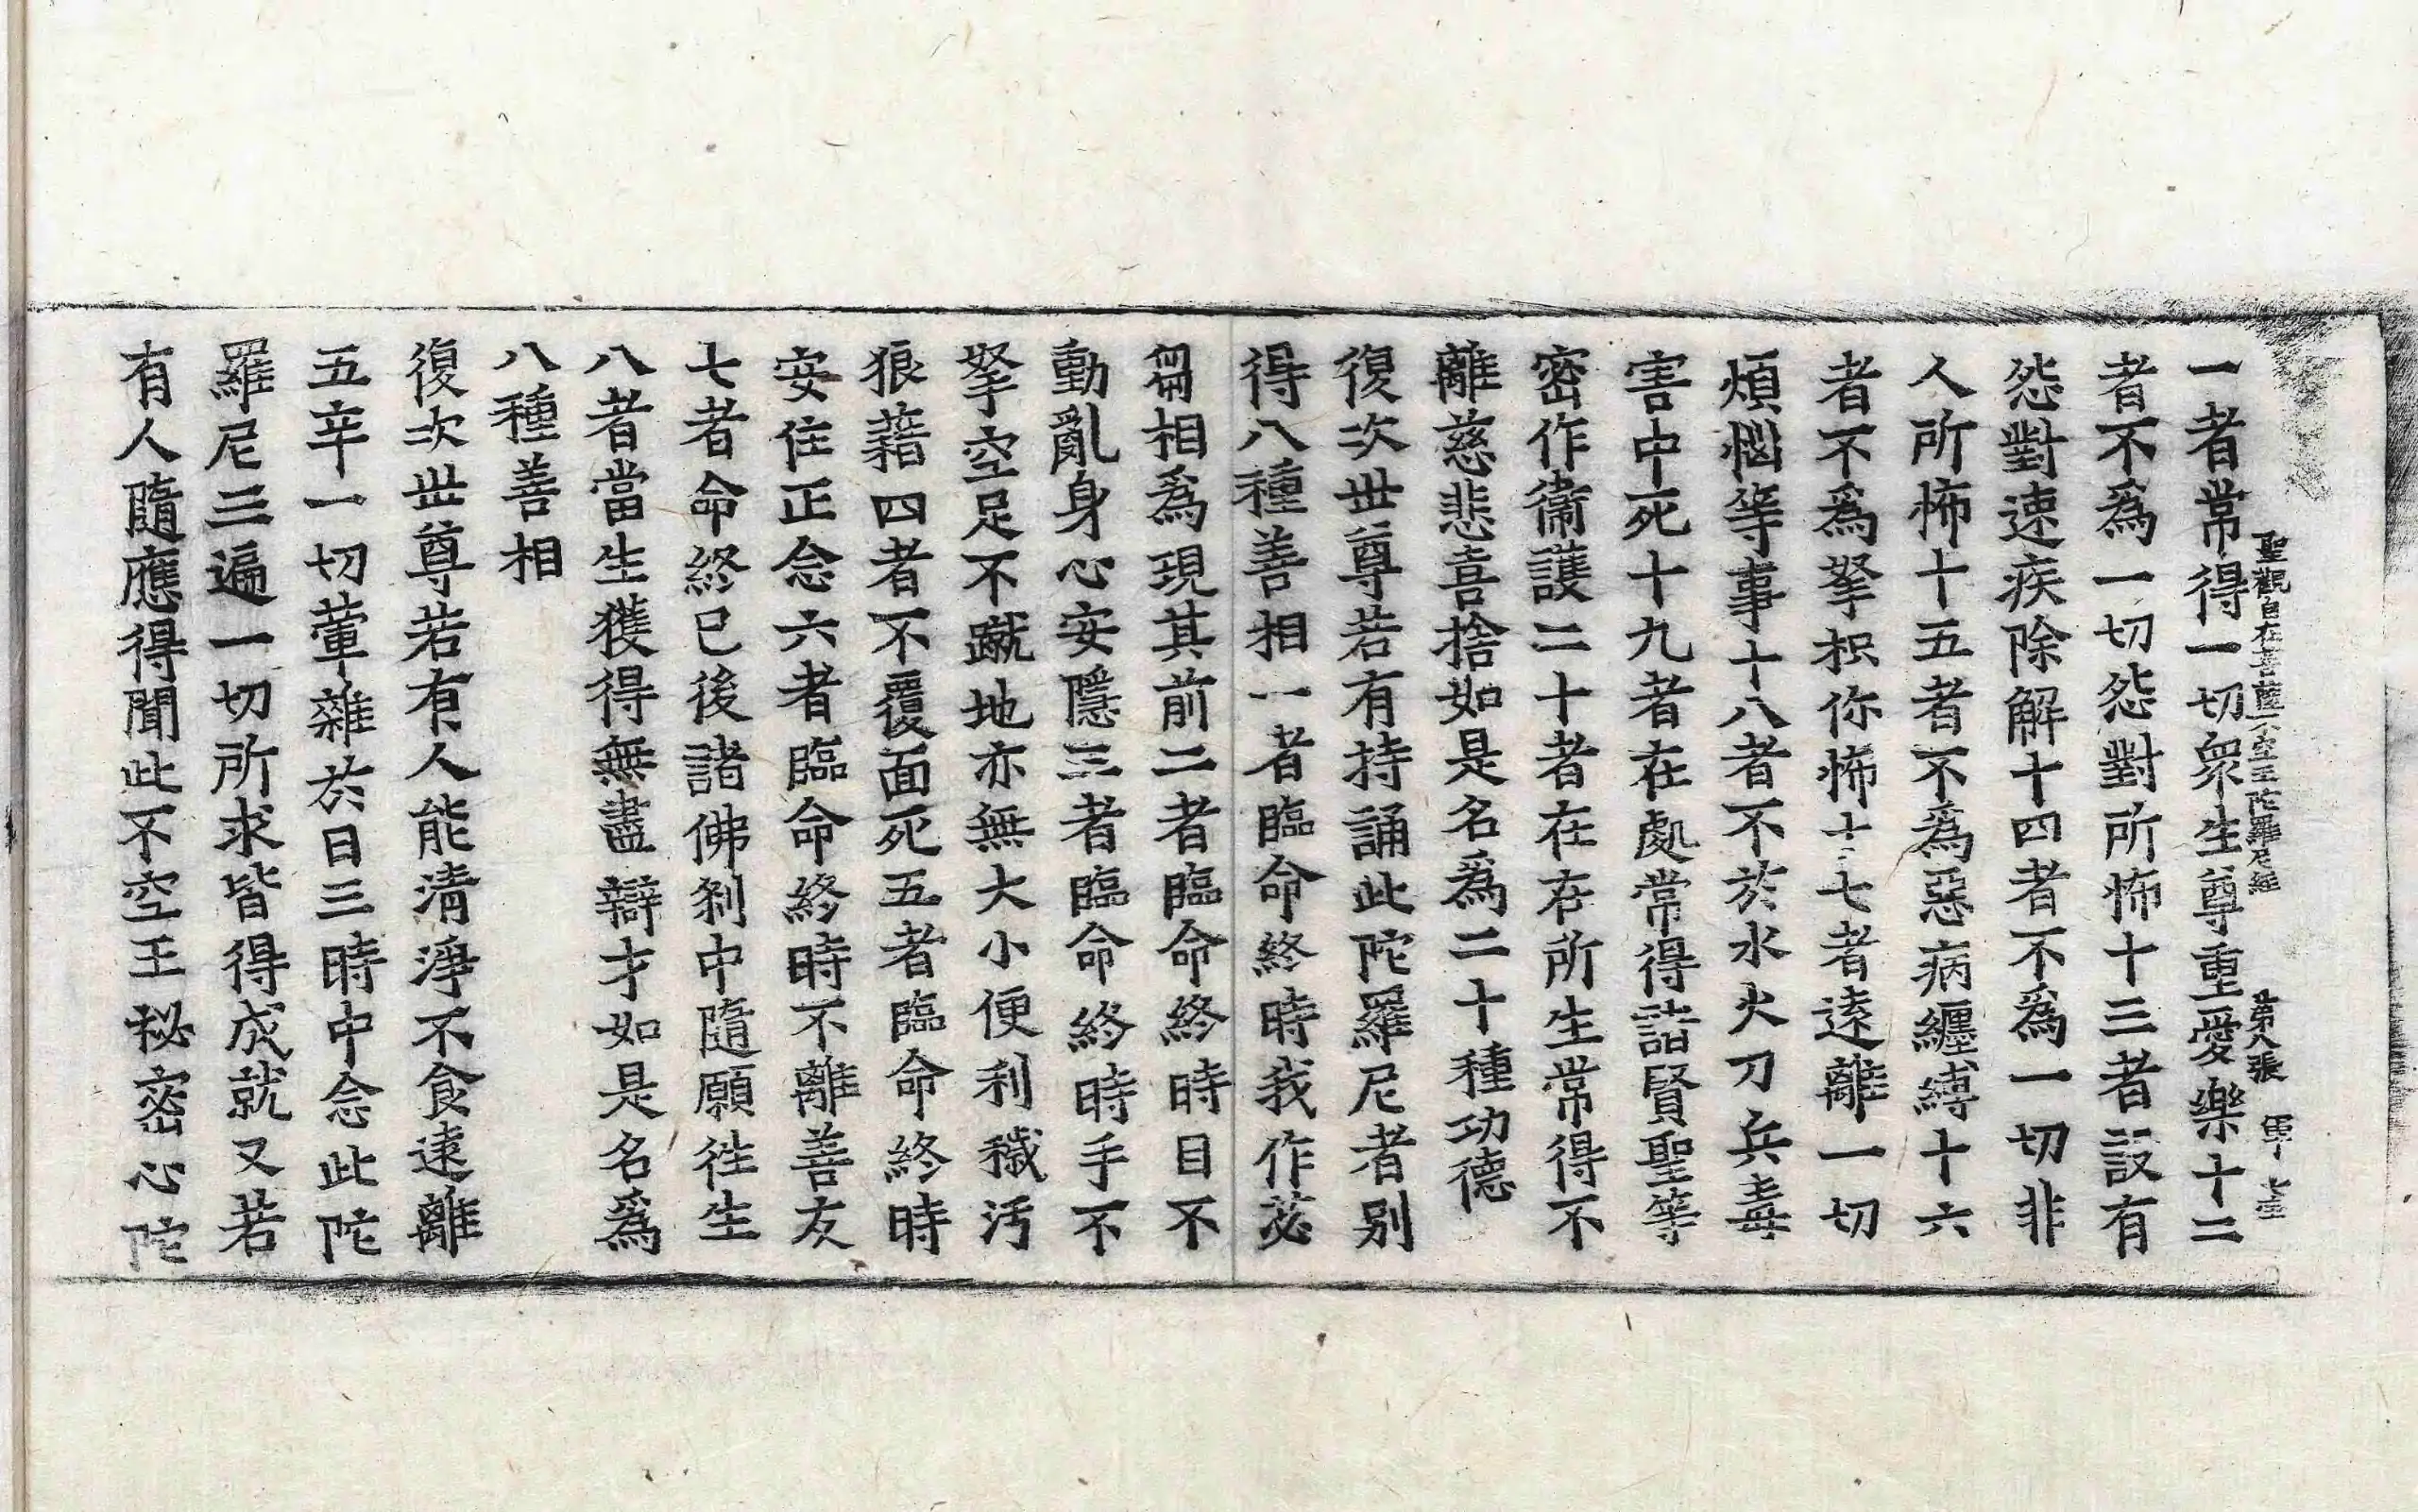 聖觀自在菩薩不空王陀羅尼經 第八張
一者常得一切衆生尊重愛樂十二
者不爲一切怨對所怖十三者設有
怨對速疾除解十四者不爲一切非
人所怖十五者不爲惡病纏縛十六
者不爲拏枳你怖十七者遠離一切
煩惱等事十八者不於水火刀兵毒
害中死十九者在處常得諸賢聖等
密作衞護二十者在在所生常得不
離慈悲喜捨如是名爲二十種功德
復次世尊若有持誦此陀羅尼者別
得八種善相一者臨命終時我作苾
芻相爲現其前二者臨命終時目不
動亂身心安隱三者臨命終時手不
拏空足不蹴地亦無大小便利穢汚
狼藉四者不覆面死五者臨命終時
安住正念六者臨命終時不離善友
七者命終已後諸佛剎中隨願徃生
八者當生獲得無盡辯才如是名爲
八種善相
復次世尊若有人能淸淨不食遠離
五辛一切葷雜於日三時中念此陀
羅尼三遍一切所求皆得成就又若
有人隨應得聞此不空王秘密心陀